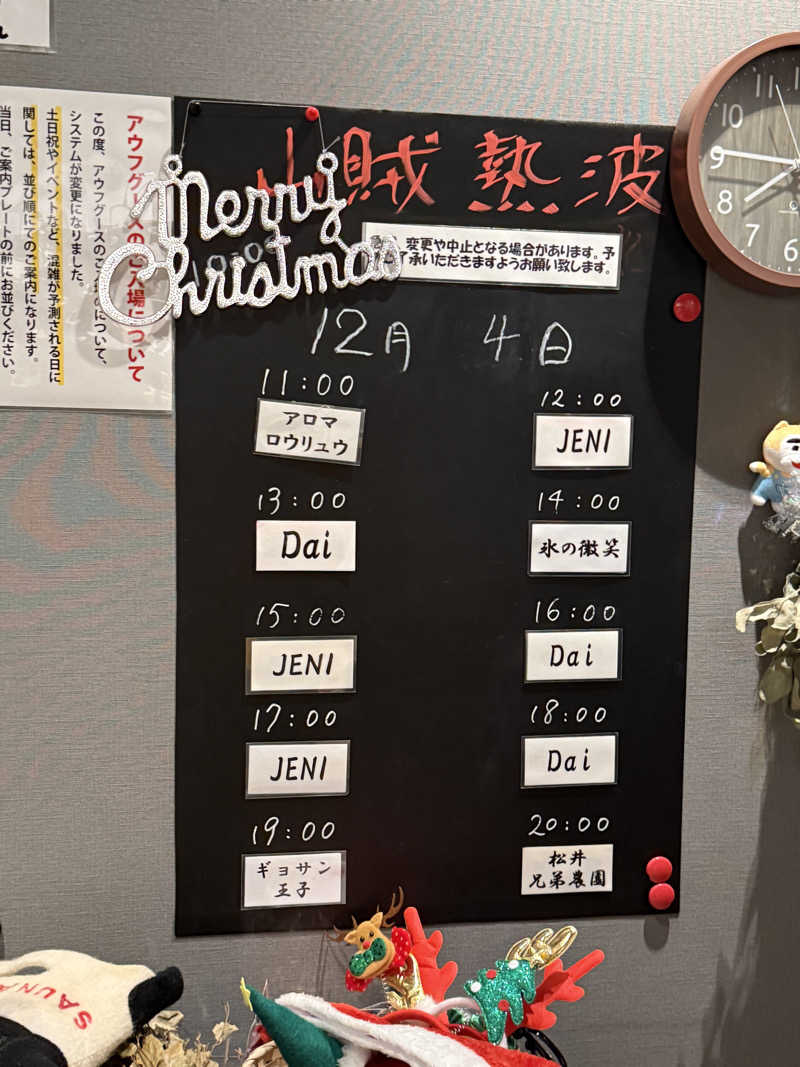 アウフグースのご入場について
この度、アウフグースのご入場
について、
システムが変更になりました。
土日祝やイベントなど、混雑が予測される日に
関しては、並び順にてのご案内になります。
当日、ご案内プレートの前にお並びください。
山賊 熱波
Merry
Christmas
変更や中止となる場合があります。予
了承いただきますようお願い致します。
12月 4日
11:00
アロマ
ロウリュウ
12:00
JENI
13:00
Dai
14:00
氷の微笑
15:00
JENI
16:00
Dai
17:00
JENI
18:00
Dai
19:00
ギョサン
王子
20:00
松井
兄弟農園
11
10
9
8
7
6
SAUNA